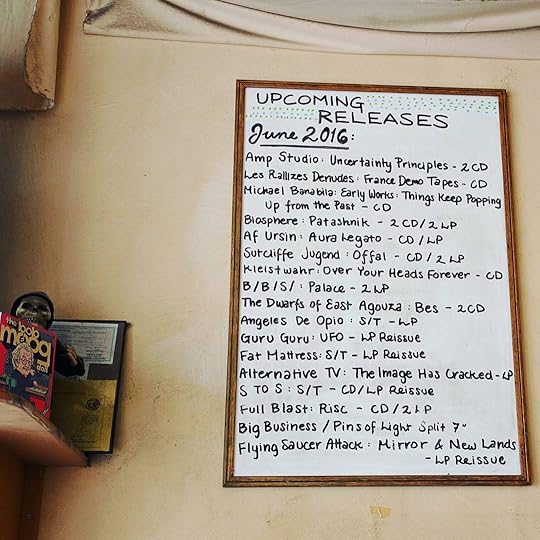 UPCOMING
RELEASES
June 2016:
Amp Studio: Uncertainty Principles - 2CD
Les Rallizes Denudes: France Demo Tapes - CD
Michael Banabila: Early Works: Things Keep Popping
Up from the Past - CD
Biosphere: Patashnik - 2CD/2LP
Af Ursin: Aura Legato - CD/LP
Sutcliffe Jugend: Offal - CD/2LP
Kleistwahr: Over Your Heads Forever - CD
B/B/S/: Palace - 2LP
The Dwarfs of East Agouza: Bes - 2CD
Angeles De Opio: S/T - LP
Guru Guru: UFO - LP Reissue
Fat Mattress: S/T - LP Reissue
Alternative TV: The Image Has Cracked - LP
S TO S: S/T - CD/LP Reissue
Full Blast: Risc - CD/2LP
Big Business / Pins of Light Split 7"
Flying Saucer Attack: Mirror & New Lands
- LP Reissue
the bob
moog
doll